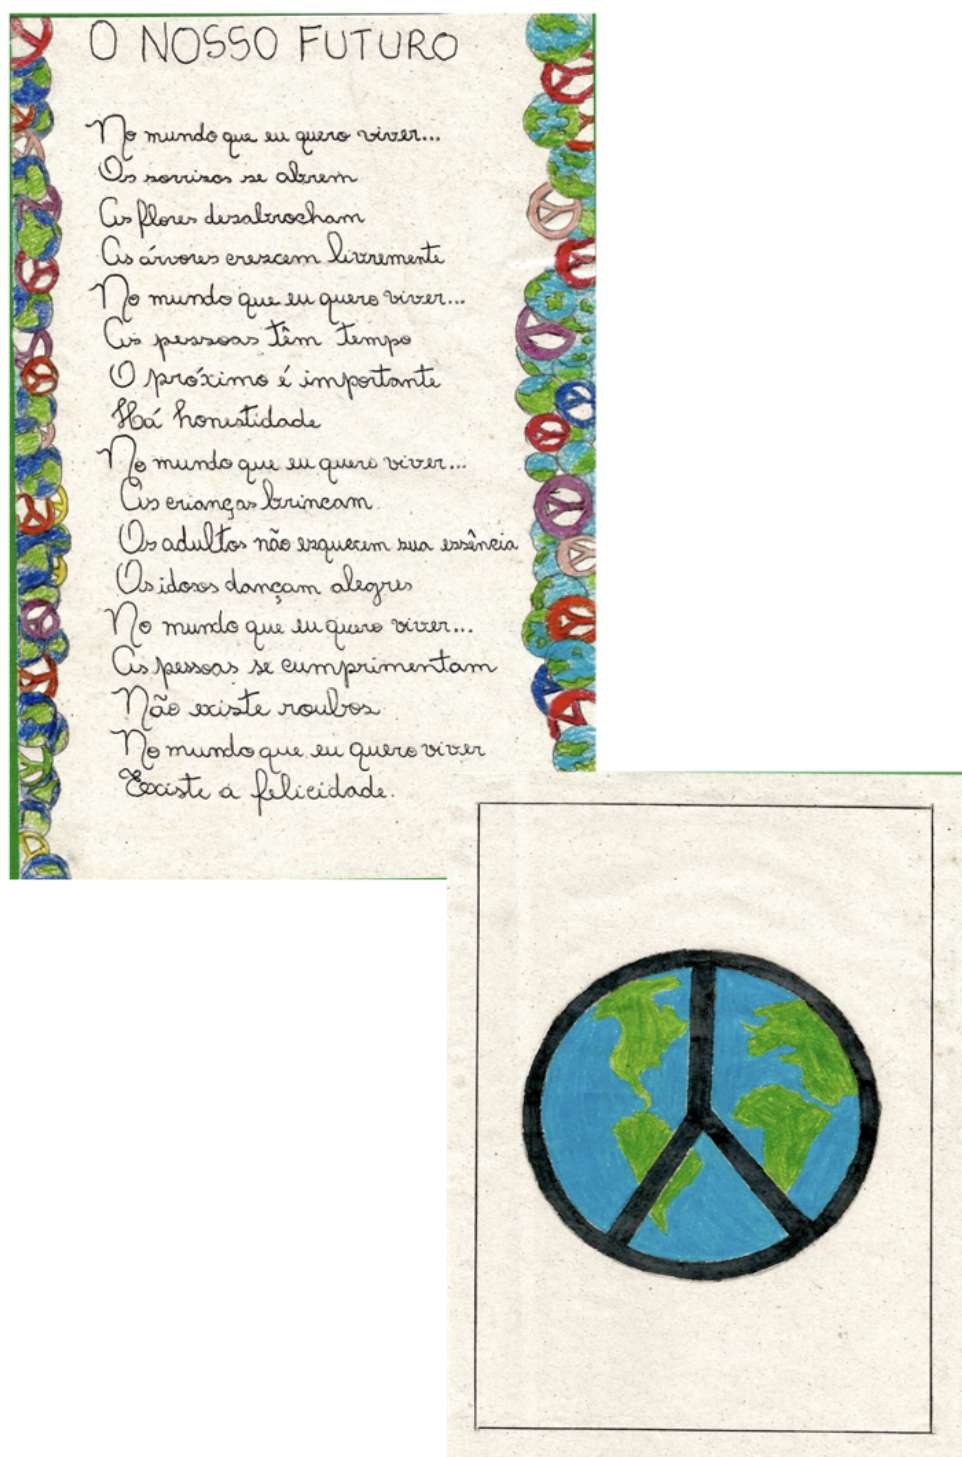 O NOSSO FUTURO
No mundo que eu quero viver...
Os sorrisos se abrem
As flores desabrocham
As árvores crescem livremente
No mundo que eu quero viver...
As pessoas têm tempo
O próximo é importante
Há honestidade
No mundo que eu quero viver...
As crianças brincam
Os adultos não esquecem sua essência
Os idosos dançam alegres
No mundo que eu quero viver...
As pessoas se cumprimentam
Não existe roubos
No mundo que eu quero viver
Existe a felicidade.